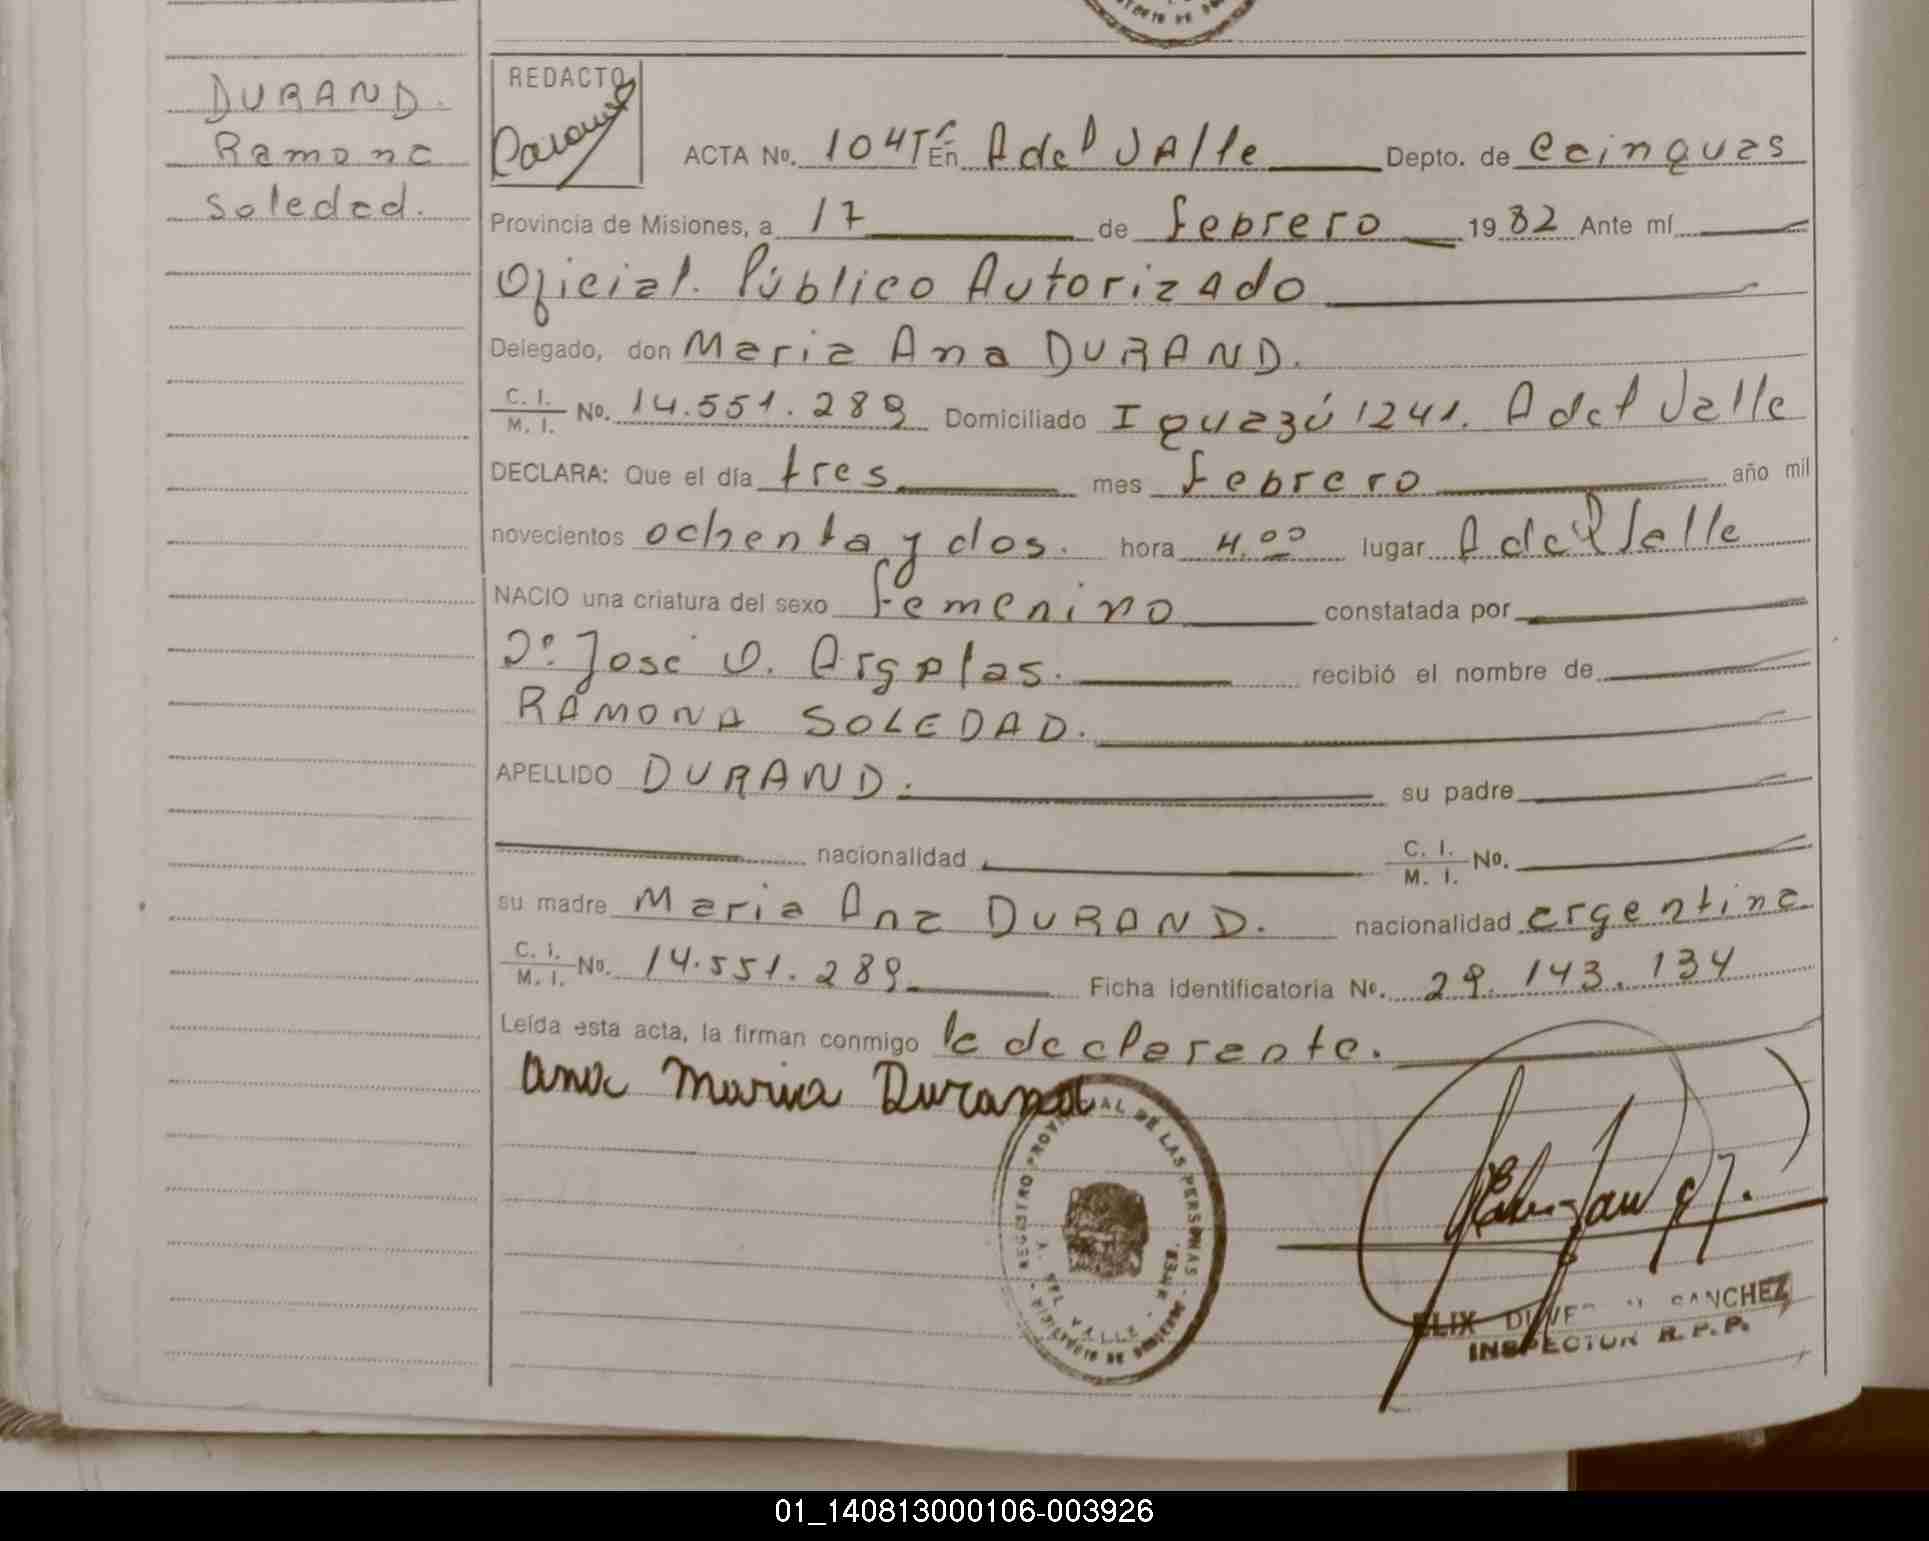 DURAND.
Ramona
Soledad.
REDACTO
ACTA No. 104 Tº En A del Valle Depto. de Cainguas
Provincia de Misiones, a 17 de febrero 1982 Ante mí
Oficial. Público Autorizado
Delegado, don Maria Ana DURAND.
C. I. / M. I. No. 14.551.289 Domiciliado Iguazú 1241. A del Valle
DECLARA: Que el día tres mes febrero año mil
novecientos ochenta y dos. hora 4.00 lugar A del Valle
NACIO una criatura del sexo femenino constatada por
José O. recibió el nombre de
RAMONA SOLEDAD.
APELLIDO DURAND. su padre
nacionalidad C. I. / M. I. No.
su madre Maria Ana DURAND. nacionalidad argentina
C. I. / M. I. No. 14.551.289 Ficha identificatoria No. 29.143.134
Leída esta acta, la firman conmigo la declarente.
Ana Maria Durand
REGISTRO PROVINCIAL DE LAS PERSONAS
A. DEL VALLE
SANCHEZ
INSPECTOR R.P.P.
01_140813000106-003926